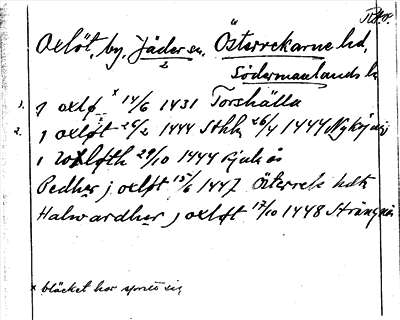 Oxlöt, by, Jäder sn, Österrekarne hd,
Södermanlands l.
1. j oxlø x 14/6 1431 Torshälla
2. j oxløt 26/2 1444 Sthlm 26/4 1444 Nyköping
i 29/10 1444
Pedher j oxløt 15/6 1447 Österrek hdr
Halwardher j oxløft 17/10 1448 Strängnäs
x bläcket har spritt sig